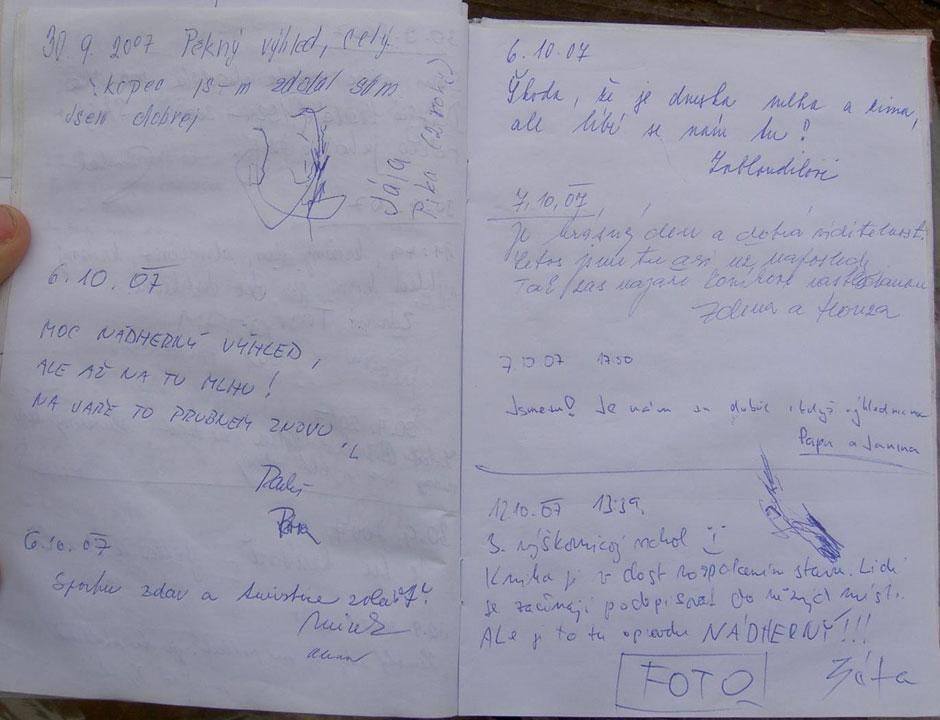 30. 9. 2007 Pěkný výhled, celý
kopec js-m zdolal sám
jsem dobrej
Jája
Pika (2 roky)
6.10.07
MOC NÁDHERNÝ VÝHLED,
ALE AŽ NA TU MLHU!
NA JAŘE TO PRUBNEM ZNOVU
6.10.07
Sportu zdar a turistice zvlášť!
Mirek
6.10.07
Škoda, že je dneska mlha a zima,
ale líbí se nám tu!
7.10.07
Je krásný den a dobrá viditelnost.
Letos jsme tu asi už naposled,
Tak zas na jaře
Zdena a Honza
7.10.07 17:50
Jsme tu! Je nám tu dobře, i když výhled není
Papu a Janina
12.10.07 13:39.
3. výškovicový vrchol :)
Kniha je v dost rozpadením stavu. Lidi
se začínají podepisovat do různých míst.
ALE je to tu opravdu NÁDHERNÝ!!!
FOTO
Báťa